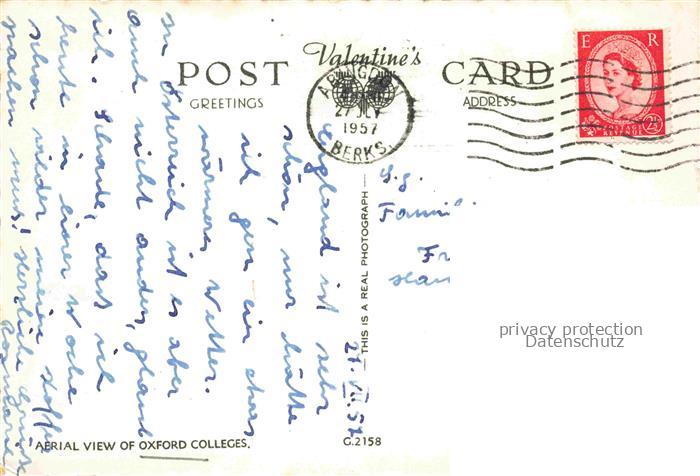 Valentine's
POST CARD
GREETINGS
ADDRESS
E R
POSTAGE
REVENUE
2½
ABINGDON
27 JLY
1957
BERKS.
27.VII.57
England ist sehr
schön, nur hätte
ich gern ein etwas
wärmeres Wetter.
In Österreich ist es aber
auch nicht anders, glaub
ich. Schade, daß ich
heute in einer Woche
schon wieder meine Koffer
packen muss! Herzliche Grüße
Rosmarie
S.g.
Famil
Fr
Han
THIS IS A REAL PHOTOGRAPH
AERIAL VIEW OF OXFORD COLLEGES.
G.2158
privacy protection
Datenschutz